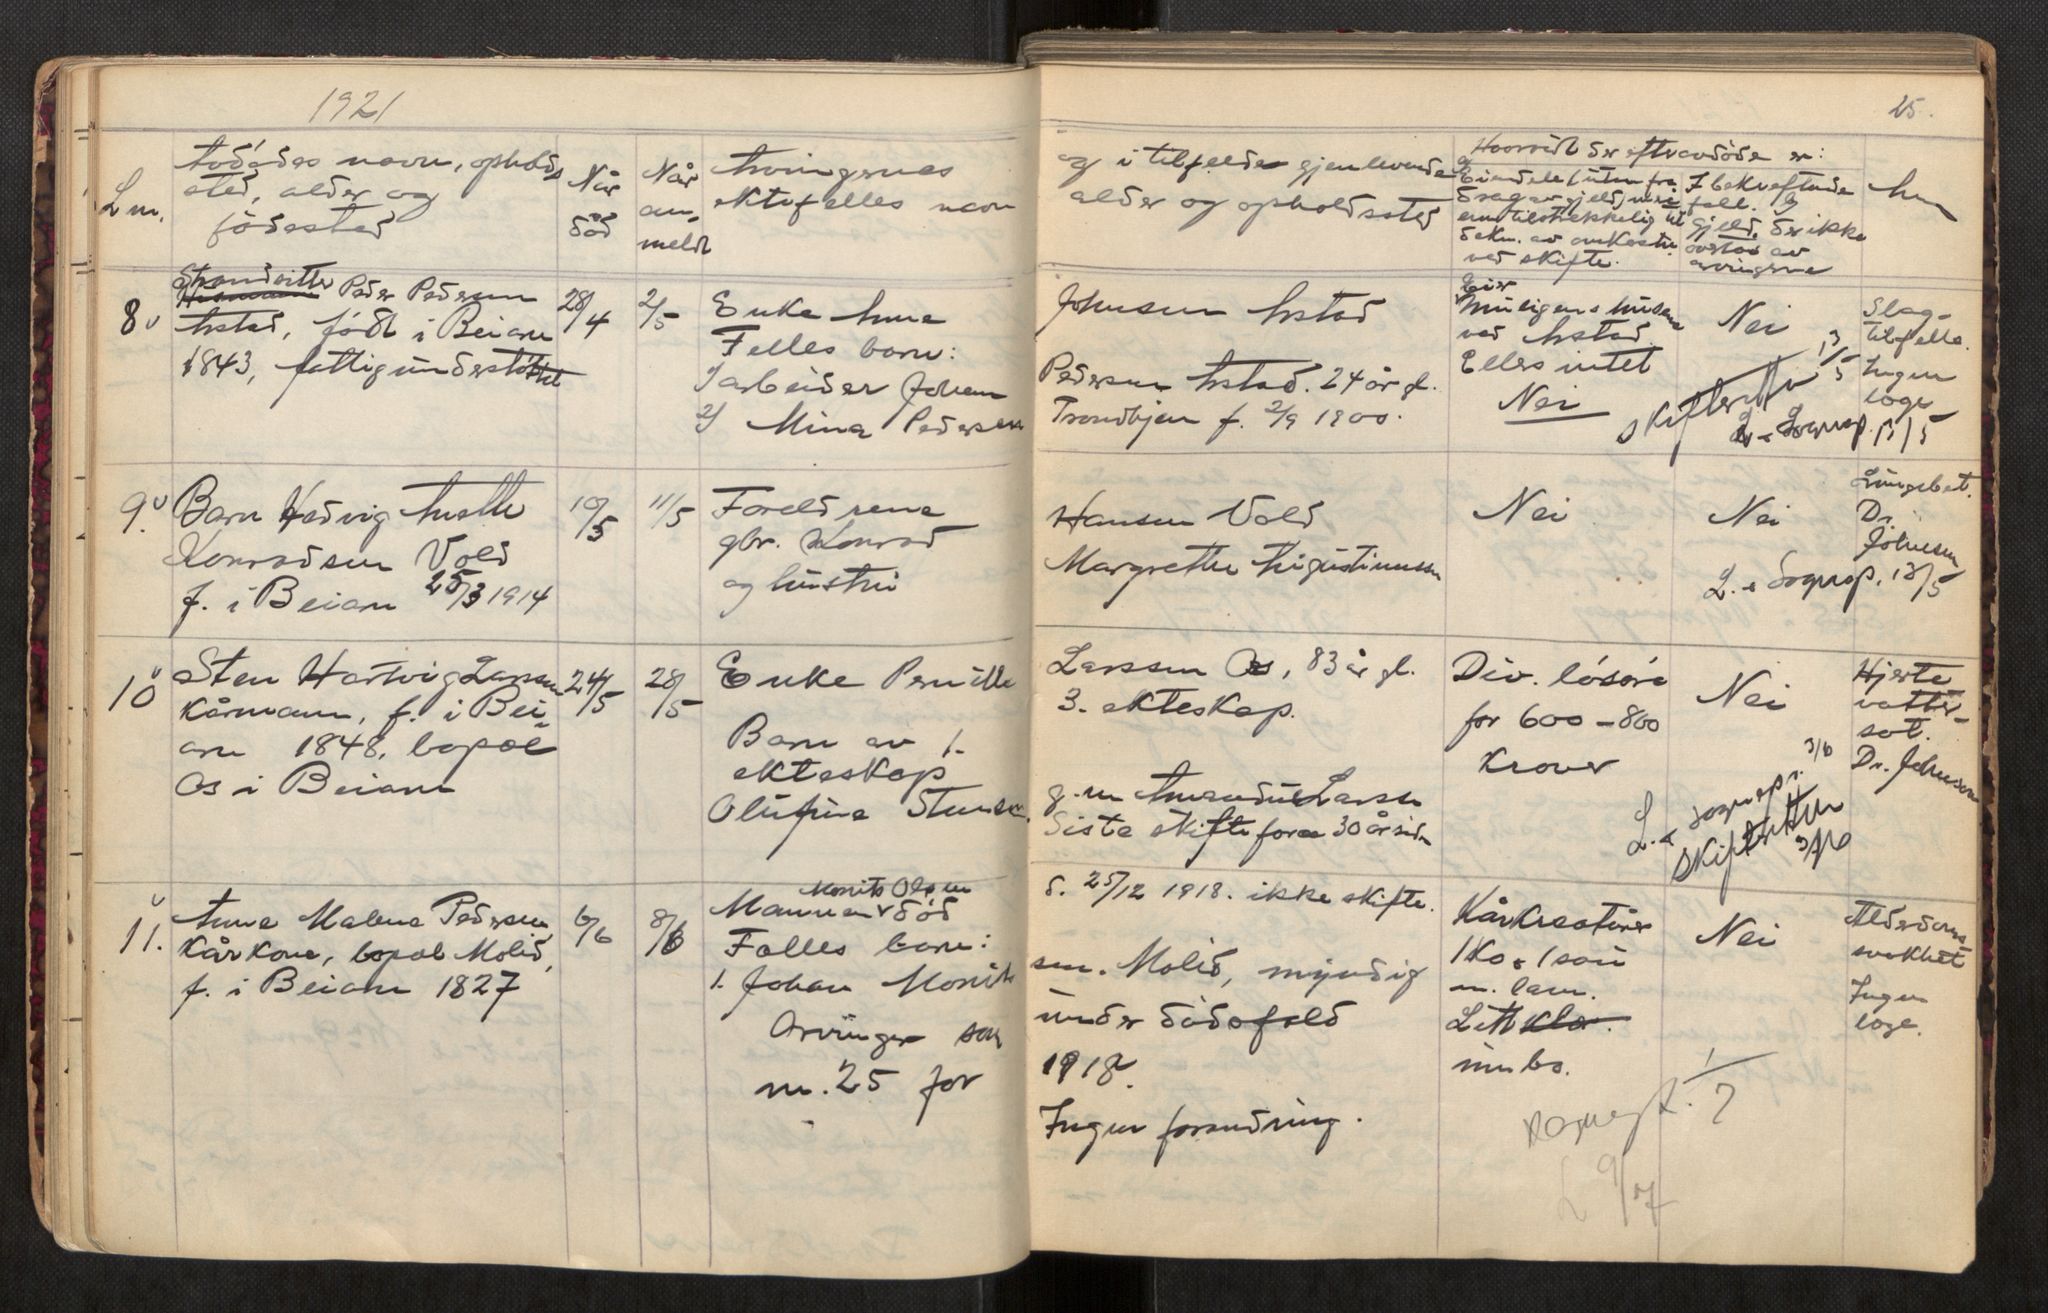 1921
25.
L nr.
Avdødes navn, opholds
sted, alder og
fødested
Når
død
Når
an-
meldt
Arvingernes
ektefelles navn
og i tilfelde gjenlevende
alder og opholdssted
Hvorvidt der eftr avdøde er:
I bekreftende
fall.
gjeld, der ikke
overtas av
arvingerne
ved skifte.
8
Strandsitter
Peder Pedersen
Arstad, født i Beiarn
1843, fattigunderstøttet
28/4
2/5
Enke Anna
Felles barn:
1/ arbeider Johan
2/ Mina Pedersen
Johnsen Arstad
Pedersen Arstad. 24 år gl.
Trondhjem f. 2/9 1900.
Eier
muligens husene
ved Arstad
Elles intet
Nei
Nei
Skifteretten 13/5
L. Sognep. 13/5
Slag-
tilfelle.
Ingen
læge
9.
Barn Hedvig Anette
Konradsen Vold
f. i Beiarn 25/3 1914
10/5
11/5
Foreldrene
gbr. Konrad
og hustru
Hansen Vold
Margrethe Augustinussen
Nei
Nei
L. Sognep. 13/5
Lungebet.
Dr.
Johnesen
10
Sten Hartvig Larssen
Kårmann, f. i Bei-
arn 1848, bopæl
Os i Beiarn
24/5
28/5
Enke Pernille
Barn av 1.
ekteskap
Olufine Stensen.
Larssen Os, 83 år gl.
3. ekteskap.
g. m Amandus Larsen
Siste skifte foran 30 år siden
Div. løsøre
for 600-800
Kroner
Nei
L. sognep. 3/6
Skifteretten 3/6
Hjerte
vatter-
sot.
Dr. Johnesen
11.
Anna Malena Pedersen
Kårkone, bopæl Molid,
f. i Beiarn 1827
6/6
8/6
Monits Olsen
Mannen død
Felles barn:
1. Johan Monits
Arvinger som
nr. 25 for
d. 25/12 1918. ikke skifte.
sen. Molid, myndig
under dødsfald
1918.
Ingen forandring.
Kårkreaturer
1 Ko, 1 sau
m. lam.
Litt klær.
innbo.
Nei
1/7
L 9/7
Alderdoms-
svakhet
Ingen
læge.